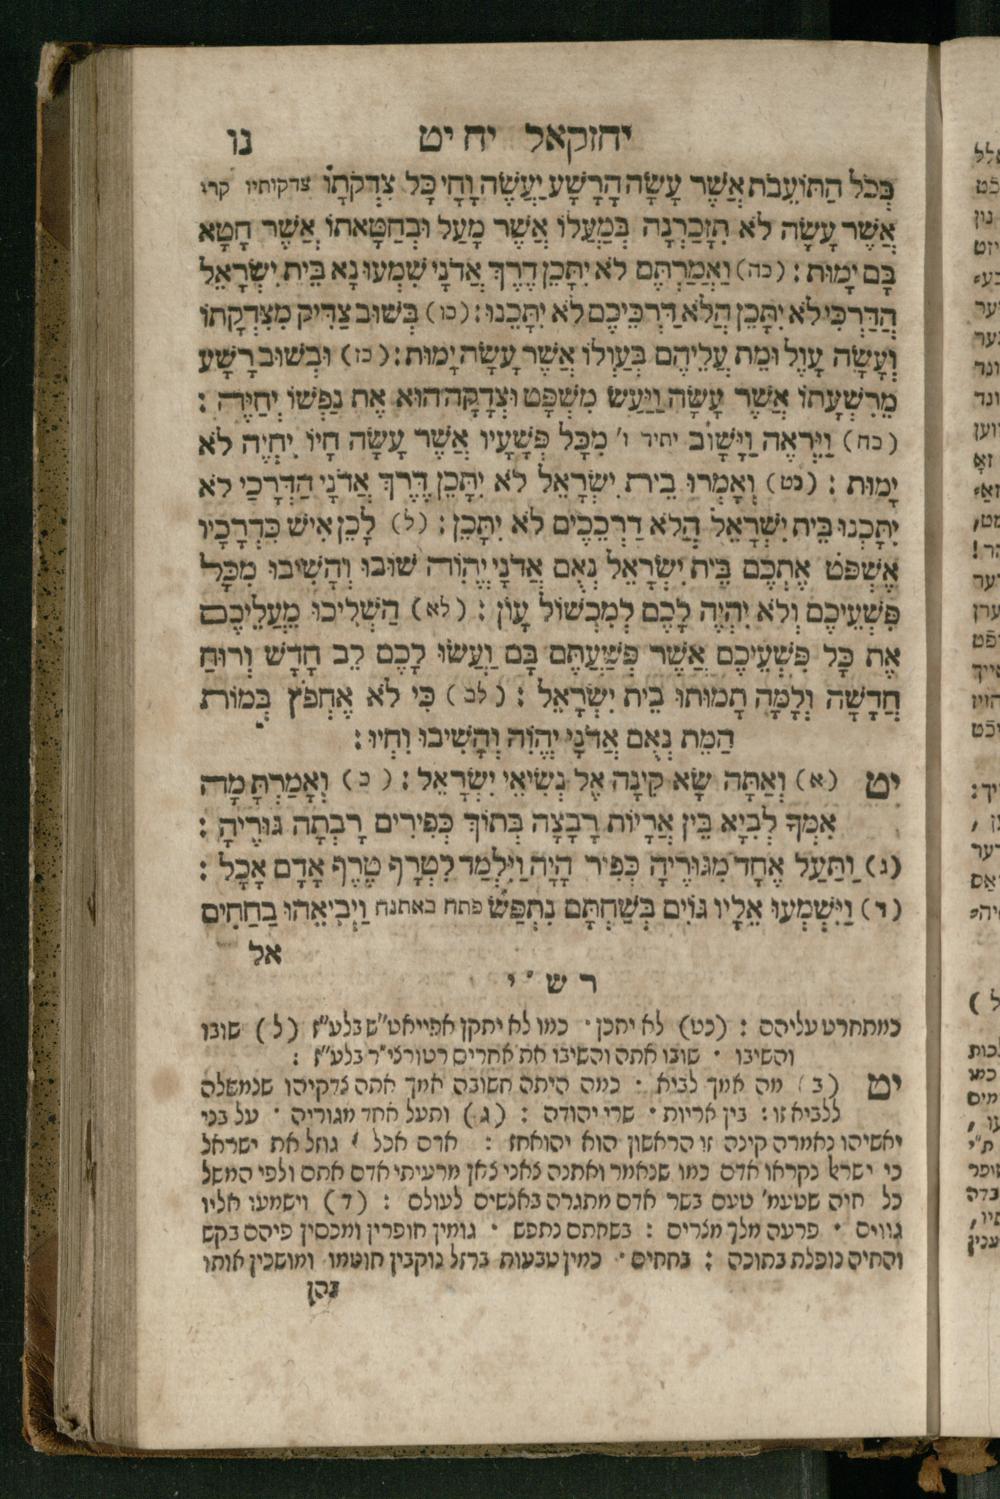 יחזקאל יח יט נו
בְּכֹל הַתּוֹעֵבֹת אֲשֶׁר עָשָׂה הָרָשָׁע יַעֲשֶׂה וָחָי כָּל צִדְקֹתָו צדקותיו קרי
אֲשֶׁר עָשָׂה לֹא תִזָּכַרְנָה בְּמַעֲלוֹ אֲשֶׁר מָעַל וּבְחַטָּאתוֹ אֲשֶׁר חָטָא
בָּם יָמוּת : (כה) וַאֲמַרְתֶּם לֹא יִתָּכֵן דֶּרֶךְ אֲדֹנָי שִׁמְעוּ נָא בֵּית יִשְׂרָאֵל
הֲדַרְכִּי לֹא יִתָּכֵן הֲלֹא דַרְכֵיכֶם לֹא יִתָּכֵנוּ : (כו) בְּשׁוּב צַדִּיק מִצִּדְקָתוֹ
וְעָשָׂה עָוֶל וּמֵת עֲלֵיהֶם בְּעַוְלוֹ אֲשֶׁר עָשָׂה יָמוּת : (כז) וּבְשׁוּב רָשָׁע
מֵרִשְׁעָתוֹ אֲשֶׁר עָשָׂה וַיַּעַשׂ מִשְׁפָּט וּצְדָקָה הוּא אֶת נַפְשׁוֹ יְחַיֶּה :
(כח) וַיִּרְאֶה וַיָּשׁוֹב יתיר ו' מִכָּל פְּשָׁעָיו אֲשֶׁר עָשָׂה חָיוֹ יִחְיֶה לֹא
יָמוּת : (כט) וְאָמְרוּ בֵּית יִשְׂרָאֵל לֹא יִתָּכֵן דֶּרֶךְ אֲדֹנָי הַדְּרָכַי לֹא
יִתָּכְנוּ בֵּית יִשְׂרָאֵל הֲלֹא דַרְכֵכֶים לֹא יִתָּכֵן : (ל) לָכֵן אִישׁ כִּדְרָכָיו
אֶשְׁפֹּט אֶתְכֶם בֵּית יִשְׂרָאֵל נְאֻם אֲדֹנָי יֱהֹוִה שׁוּבוּ וְהָשִׁיבוּ מִכָּל
פִּשְׁעֵיכֶם וְלֹא יִהְיֶה לָכֶם לְמִכְשׁוֹל עָוֹן : (לא) הַשְׁלִיכוּ מֵעֲלֵיכֶם
אֶת כָּל פִּשְׁעֵיכֶם אֲשֶׁר פְּשַׁעְתֶּם בָּם וַעֲשׂוּ לָכֶם לֵב חָדָשׁ וְרוּחַ
חֲדָשָׁה וְלָמָּה תָמוּתוּ בֵּית יִשְׂרָאֵל : (לב) כִּי לֹא אֶחְפֹּץ בְּמוֹת
הַמֵּת נְאֻם אֲדֹנָי יֱהֹוִה וְהָשִׁיבוּ וִחְיוּ :
יט (א) וְאַתָּה שָׂא קִינָה אֶל נְשִׂיאֵי יִשְׂרָאֵל : (ב) וְאָמַרְתָּ מָה
אִמְּךָ לְבִיָּא בֵּין אֲרָיוֹת רָבָצָה בְּתוֹךְ כְּפִירִים רִבְּתָה גוּרֶיהָ :
(ג) וַתַּעַל אֶחָד מִגּוּרֶיהָ כְּפִיר הָיָה וַיִּלְמַד לִטְרָף טֶרֶף אָדָם אָכָל :
(ד) וַיִּשְׁמְעוּ אֵלָיו גּוֹיִם בְּשַׁחְתָּם נִתְפַּשׂ פתח באתנח וַיְבִיאֻהוּ בַחַחִים
אל
רש"י
כמתחרט עליהם : (כט) לא יתכן · כמו לא יתקן אפייאט"ש בלע"ז (ל) שובו
והשיבו · שובו אתה והשיבו את אחרים רטורני"ר בלע"ז :
יט (ב) מה אמך לביא · כמה היתה חשובה אמך אתה צדקיהו שנמשלה
ללביא זו : בין אריות · שרי יהודה : (ג) ותעל אחד מגוריה · על בני
יאשיהו נאמרה קינה זו הראשון הוא יהואחז : אדם אכל · גזל את ישראל
כי ישראל נקראו אדם כמו שנאמר ואתנה צאני צאן מרעיתי אדם אתם ולפי המשל
כל חיה שטעמ' טעם בשר אדם מתגרה באנשים לעולם : (ד) וישמעו אליו
גווים · פרעה מלך מצרים : בשחתם נתפש · גומין חופרין ומכסין פיהם בקש
והחיה נופלת בתוכה : בחחים · כמין טבעות ברזל נוקבין חוטמו ומושכין אותו
בהן